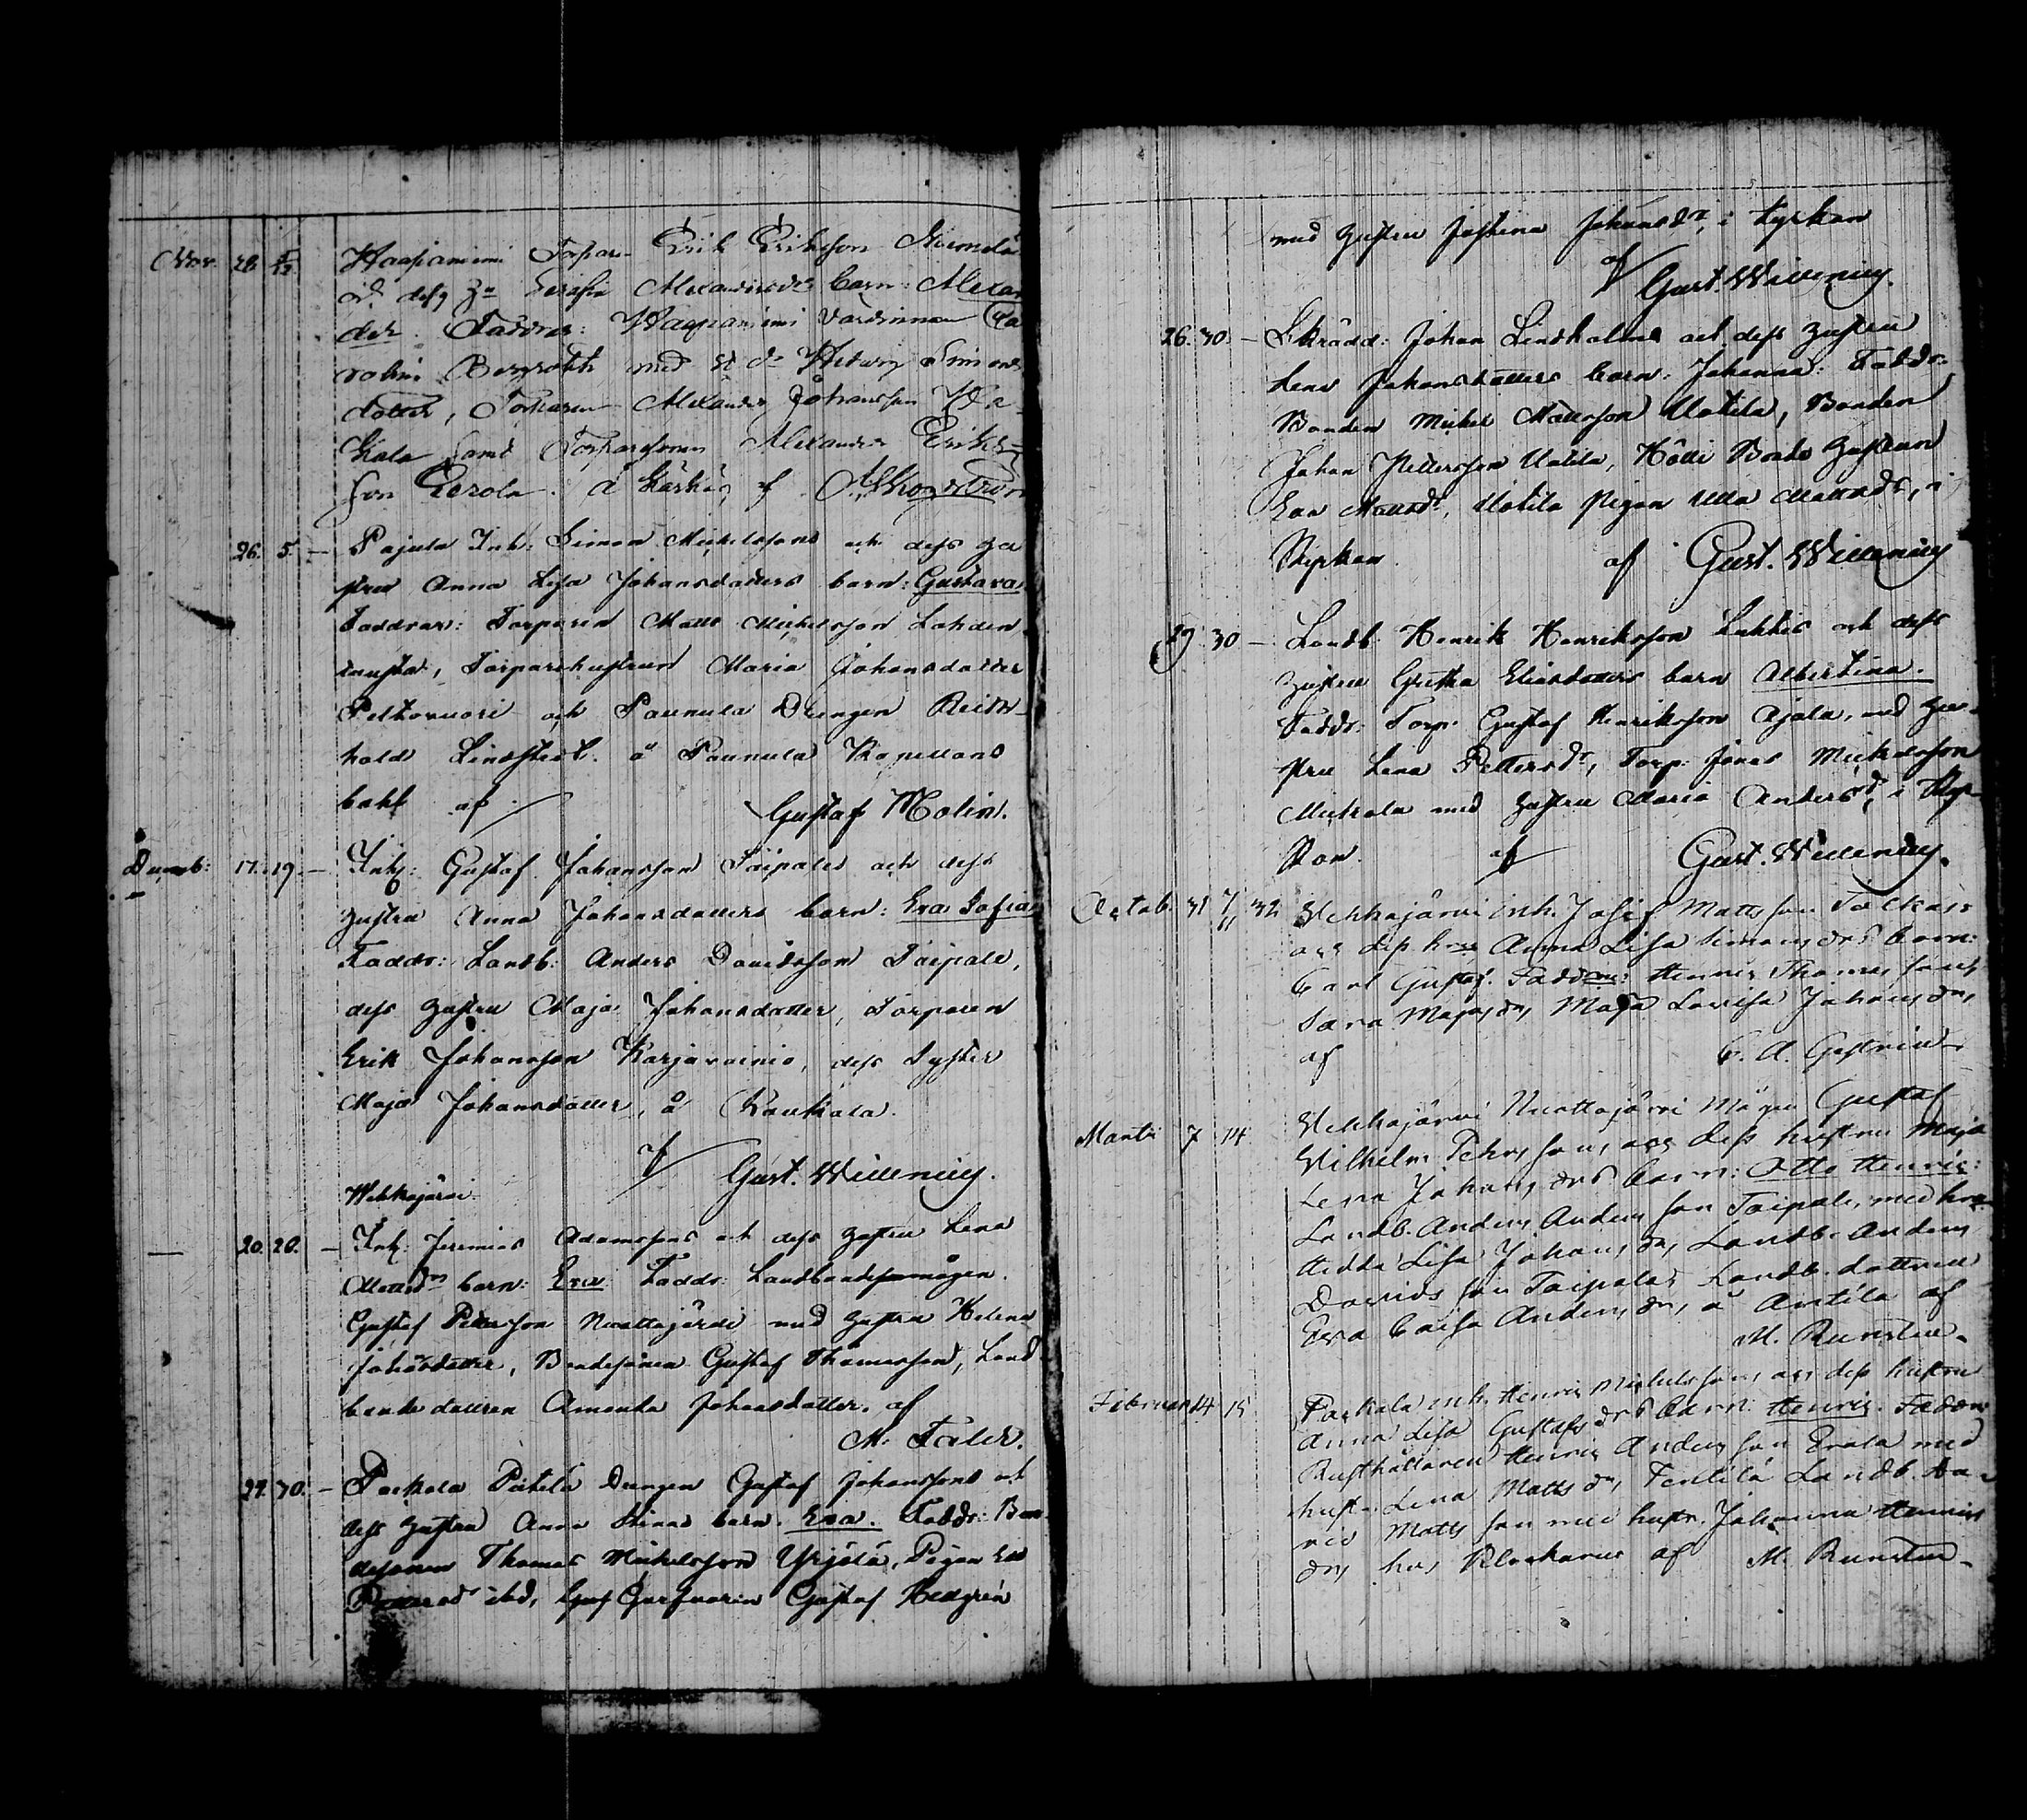 Nov. 28 5/12. Haapaniemi Torpar. Erik Eriksson
o. dess Hu Serafia Alexandersdrs barn: Alexan
der. Faddrar: Haapaniemi Värdinnan Ca
rolina med Hedvig Simons
dotter, Torparen Alexander Johansson
kala samt Torparesonen Alexander Eriks-
son Perola. å Kärkis af
26. 5. – Pajula Inh: Simon Michelssons och dess hu
stru Anna Lisa Johansdotters barn: Gustava.
Faddrar: Torparen Matts Michelsson Lahden
, Torparehustrun Maria Johansdotter
Peltovuori och Paunula Drängen Rein
hold Lindstedt. å Paunula Kapellans
bohl af Gustaf Molin.
Decemb: 17. 19. – Inh: Gustaf Johansson Taipales och dess
hustru Anna Johansdotters barn: Eva Sofia
Faddr: Landb: Anders Davidsson Taipale,
dess hustru Maja Johansdotter, Torparen
Erik Johansson Karjavainio, dess Syster
Maja Johansdotter, å Koukala.
af Gust. Willenius.
Wehkajärvi
— 20. 20. – Inh: Jeremias Adamssons och dess hustru Lena
Mattsdrs barn: Eva Faddr: Landbondemågen
Gustaf Pettersson Nuottajärvi med hustru Helena
Johansdotter, Bondesonen Gustaf Thomasson, Land
bonde dottren Amanda Johansdotter. af
M. Taler.
27. 30. – Pockala Pätilä Drängen Gustaf Johanssons och
dess hustru Anna Stinas barn. Eva. Faddr: Bon
desonen Thomas Michelsson Yrjölä, Pigan Eva
ibd, Gustaf Hedgrén
med hustru Justina Johansdr, i Kyrkan
af Gust. Willenius.
26. 30. – Skrädd: Johan Lindholms och dess hustru
Lena Johansdotters barn: Johanna: Faddr:
Bonden Michel Mattsson Uotila, Bonden
Johan Pettersson Uotila, Bonde hustrun
Eva Mattsdr, Uotila Pigan Ulla Mattsdr, i
Kyrkan. af Gust. Willenius
29 30 – Landb. Henrik Henriksson Lukkis och dess
hustru Gretha Eliasdotters barn Albertina.
Faddr: Torp. Gustaf Henriksson Ajala, med hu-
stru Lena Pettersdr, Torp: Jonas Michelsson
Mickala med hustru Maria Andersdr, i Kyr-
kan. af Gust. Willenius.
Octob. 31 7/11 32 Wehkajärvi inh. Josef Mattsson
och dess hu Anna Lisa Simonsdrs barn:
Carl Gustaf. Faddrar: Henric Thomas
Sara dr, Maja Lovisa Johansdr,
af C. A. Gestrin
Martii 7 14 Wehkajärvi Nuottajärvi Mågen Gustaf
Wilhelm Pehrssons och dess hustru Maja
Lena Johansdrs barn: Otto Henric:
Landb. Anders Andersson Taipale, med hu
Hedda Lisa Johansdr, Landb. Anders
Davidsson Taipales Landb. dottren
Eva Caisa Andersdr, å Antila af
M. Runsten.
Februari 14 15 Pockala inh. Henric Michelssons och dess hustru
Anna Lisa Gustafsdrs barn: Henric. Faddrar
Rusthållaren Henric Andersson Erola med
hustr. Lena Mattsdr, Tentilä Landb. Da-
vid Mattsson med hustr. Johanna Henrics
dr, hos Klockaren af M. Runsten